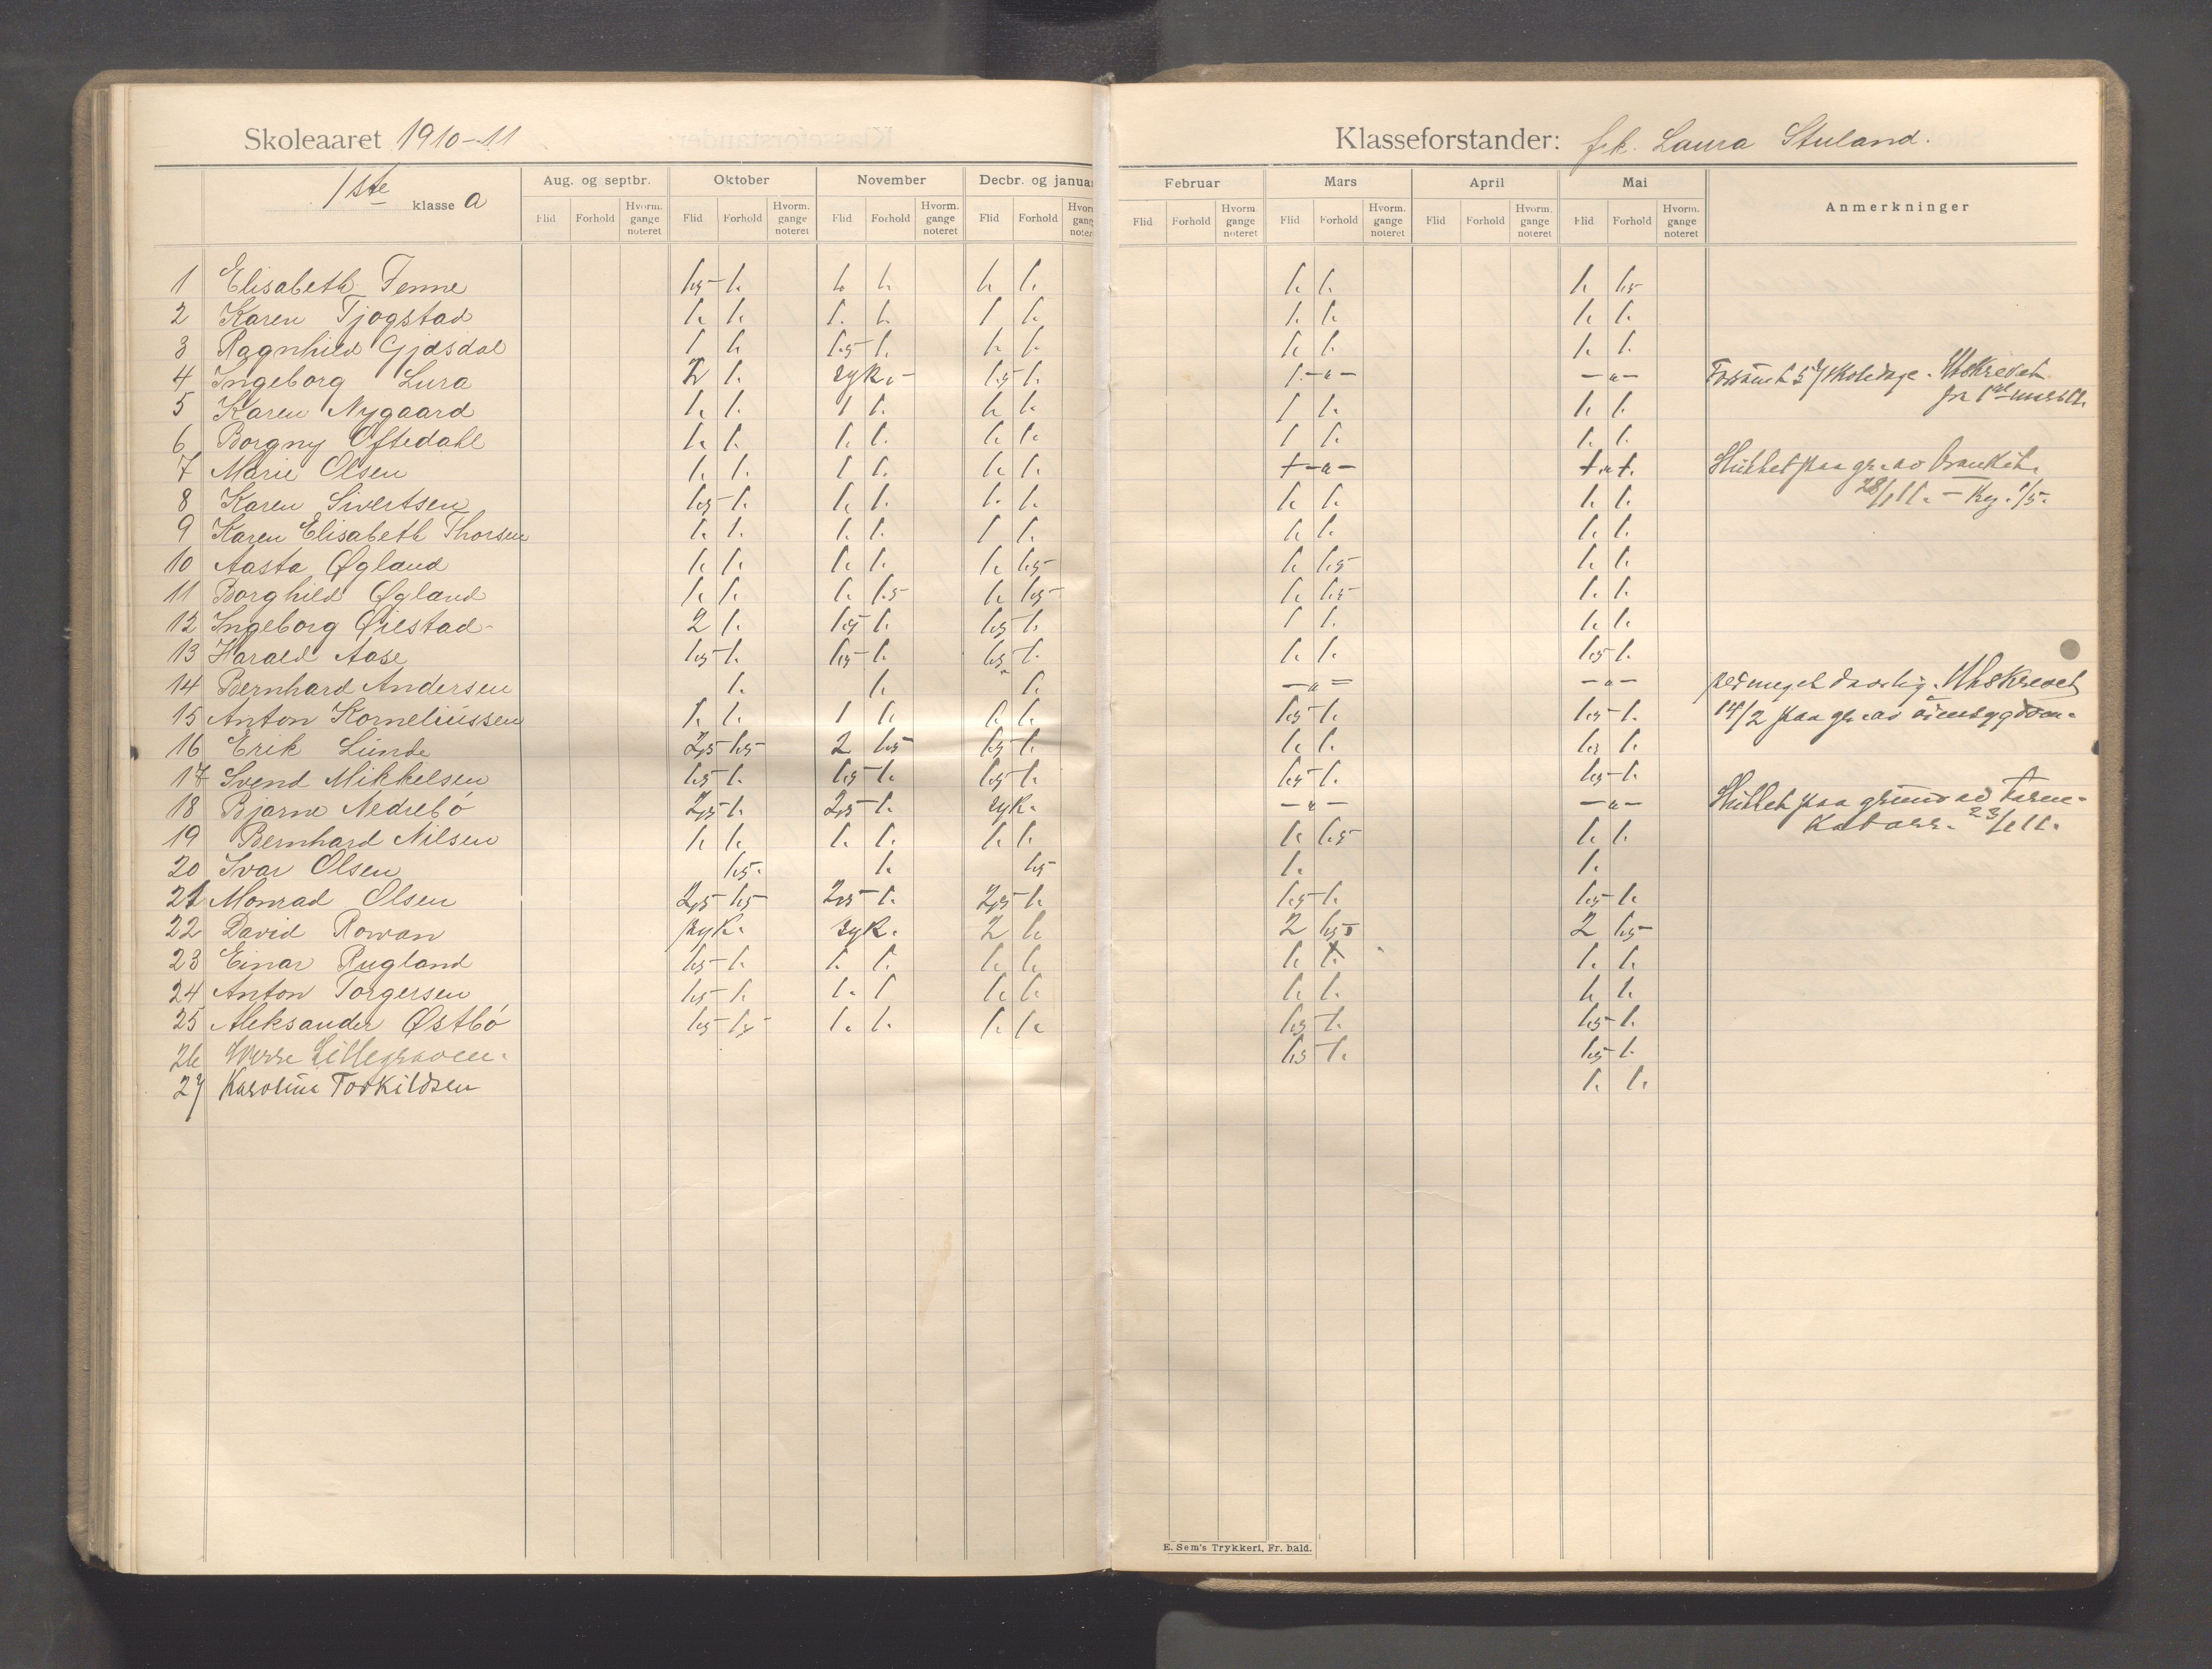 Skoleaaret 1910-11
Klasseforstander: frk. Laura Stuland.
1ste klasse a
Aug. og septbr. Oktober November Decbr. og januar Februar Mars April Mai Anmerkninger
Flid Forhold Hvorm. gange noteret Flid Forhold Hvorm. gange noteret Flid Forhold Hvorm. gange noteret Flid Forhold Flid Forhold Hvorm. gange noteret Flid Forhold Hvorm. gange noteret Flid Forhold Hvorm. gange noteret Flid Forhold Hvorm. gange noteret
1 Elisabeth Fenne 1,5 1. 1. 1. 1. 1. 1. 1. 1. 1,5
2 Karen Tjogstad 1. 1. 1. 1. 1 1. 1. 1. 1. 1.
3 Ragnhild Gjdsdal 1 1. 1,5 1. 1. 1. 1. 1. 1. 1.
4 Ingeborg Lura 2 1. syk. 1,5 1. 1. -"- -"- Utskrevet
5 Karen Nygaard 1. 1. 1 1. 1. 1. 1 1. 1. 1.
6 Borgny Oftedahl 1. 1. 1. 1. 1. 1. 1 1. 1. 1.
7 Marie Olsen 1. 1. 1 1. 1. 1. -"- Sluttet paa gr. av
8 Karen Sivertsen 1,5 1. 1. 1. 1. 1. 1. 1. 1. 1. 28/1 11.
9 Karen Elisabeth Thorsen 1. 1. 1. 1. 1 1. 1. 1. 1. 1.
10 Aasta Øgland 1. 1. 1. 1. 1. 1,5 1. 1,5 1. 1.
11 Borghild Øgland 1. 1. 1. 1.5 1. 1,5 1. 1,5 1. 1.
12 Ingeborg Øiestad 2 1. 1,5 1. 1,5 1. 1 1. 1. 1.
13 Harald Aase 1,5 1. 1,5 1. 1,5 1. 1. 1. 1,5 1.
14 Bernhard Andersen 1. 1. 1. -"- -"- meget daarlig. Utskrevet
15 Anton Korneliussen 1. 1. 1 1. 1. 1. 1,5 1. 1,5 1. 14/2 paa gr. av öiensygdom.
16 Erik Lunde 2,5 1,5 2 1,5 1,5 1. 1. 1. 1,5 1.
17 Svend Mikkelsen 1,5 1. 1,5 1. 1,5 1. 1,5 1. 1,5 1.
18 Bjarne Nedrebö 2,5 1. 2,5 1. syk. -"- -"- Sluttet paa grund av tarm-
19 Bernhard Nilsen 1. 1. 1. 1. 1. 1. 1. 1,5 1. 1. katarr. 23/1 11.
20 Ivar Olsen 1,5. 1. 1,5 1. 1.
21 Monrad Olsen 2,5 1,5 2,5 1. 2,5 1. 1,5 1. 1,5 1.
22 David Rowan syk. syk. 2 1. 2 1,5 2 1,5
23 Einar Rugland 1,5 1. 1. 1. 1. 1. 1. 1. 1. 1.
24 Anton Torgersen 1,5 1. 1. 1 1. 1. 1. 1. 1. 1.
25 Aleksander Østbö 1,5 1,5 1. 1. 1. 1. 1,5 1. 1,5 1.
26 Lillegraven. 1,5 1. 1,5 1.
27 Karoline Torkildsen 1. 1.
E. Sem's Trykkeri, Fr. hald.